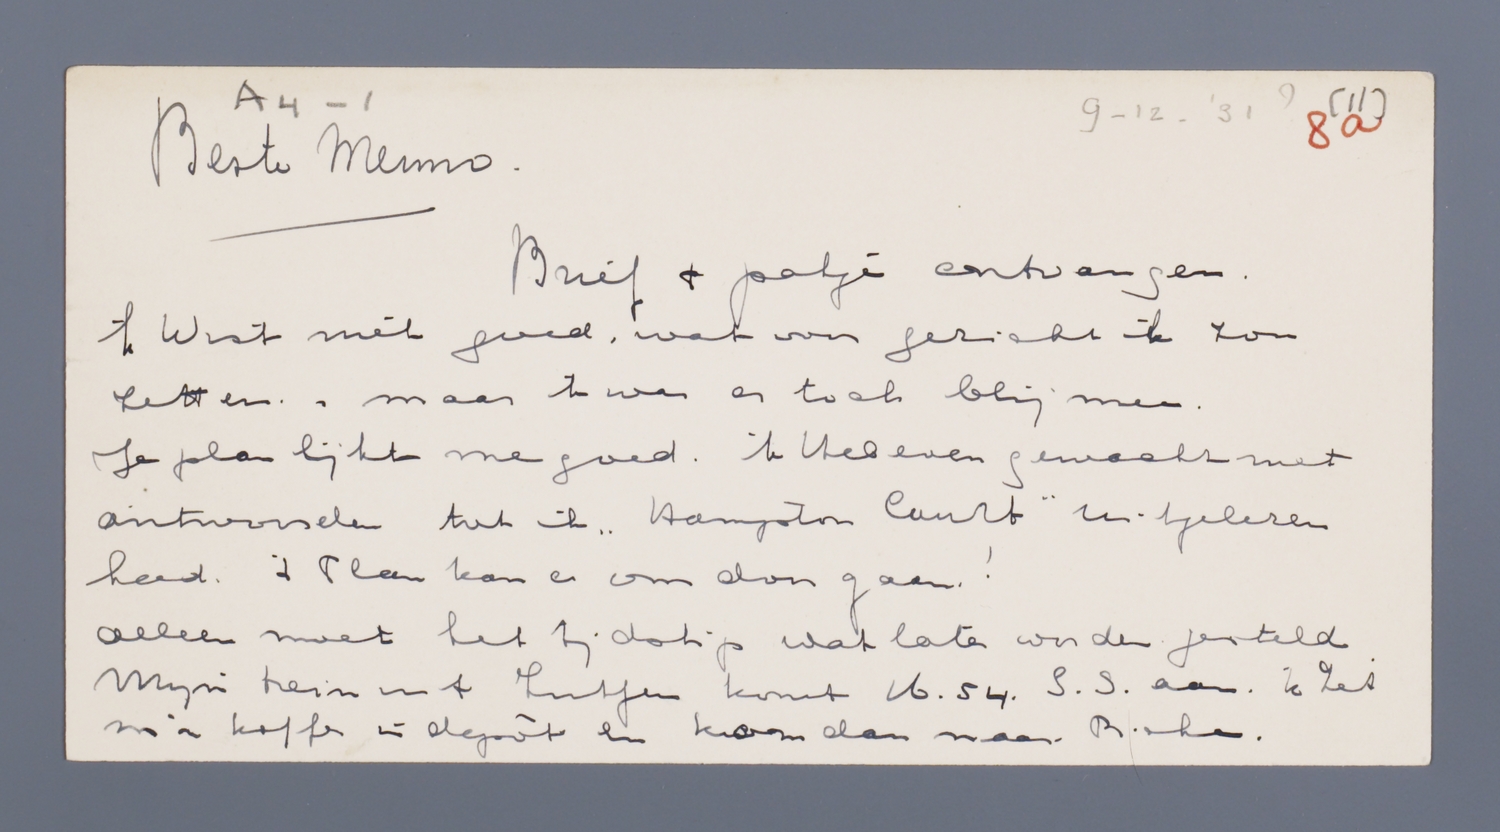 A4-1
9-12-'31 ? [11]
8a
Beste Menno.
Brief + pakje ontvangen.
ik Wist niet goed, wat voor gezicht ik zou
zetten. maar 'k was er toch blij mee.
Je plan lijkt me goed. ik Heb even gewacht met
antwoorden tot ik „Hampton Court" uitgelezen
had. 't Plan kan er om door gaan!
alleen moet het tijdstip wat later worden gesteld.
Mijn trein uit Zutfen komt 16.54. S.S. aan. ik Zet
m'n koffer in depôt en kom dan naar